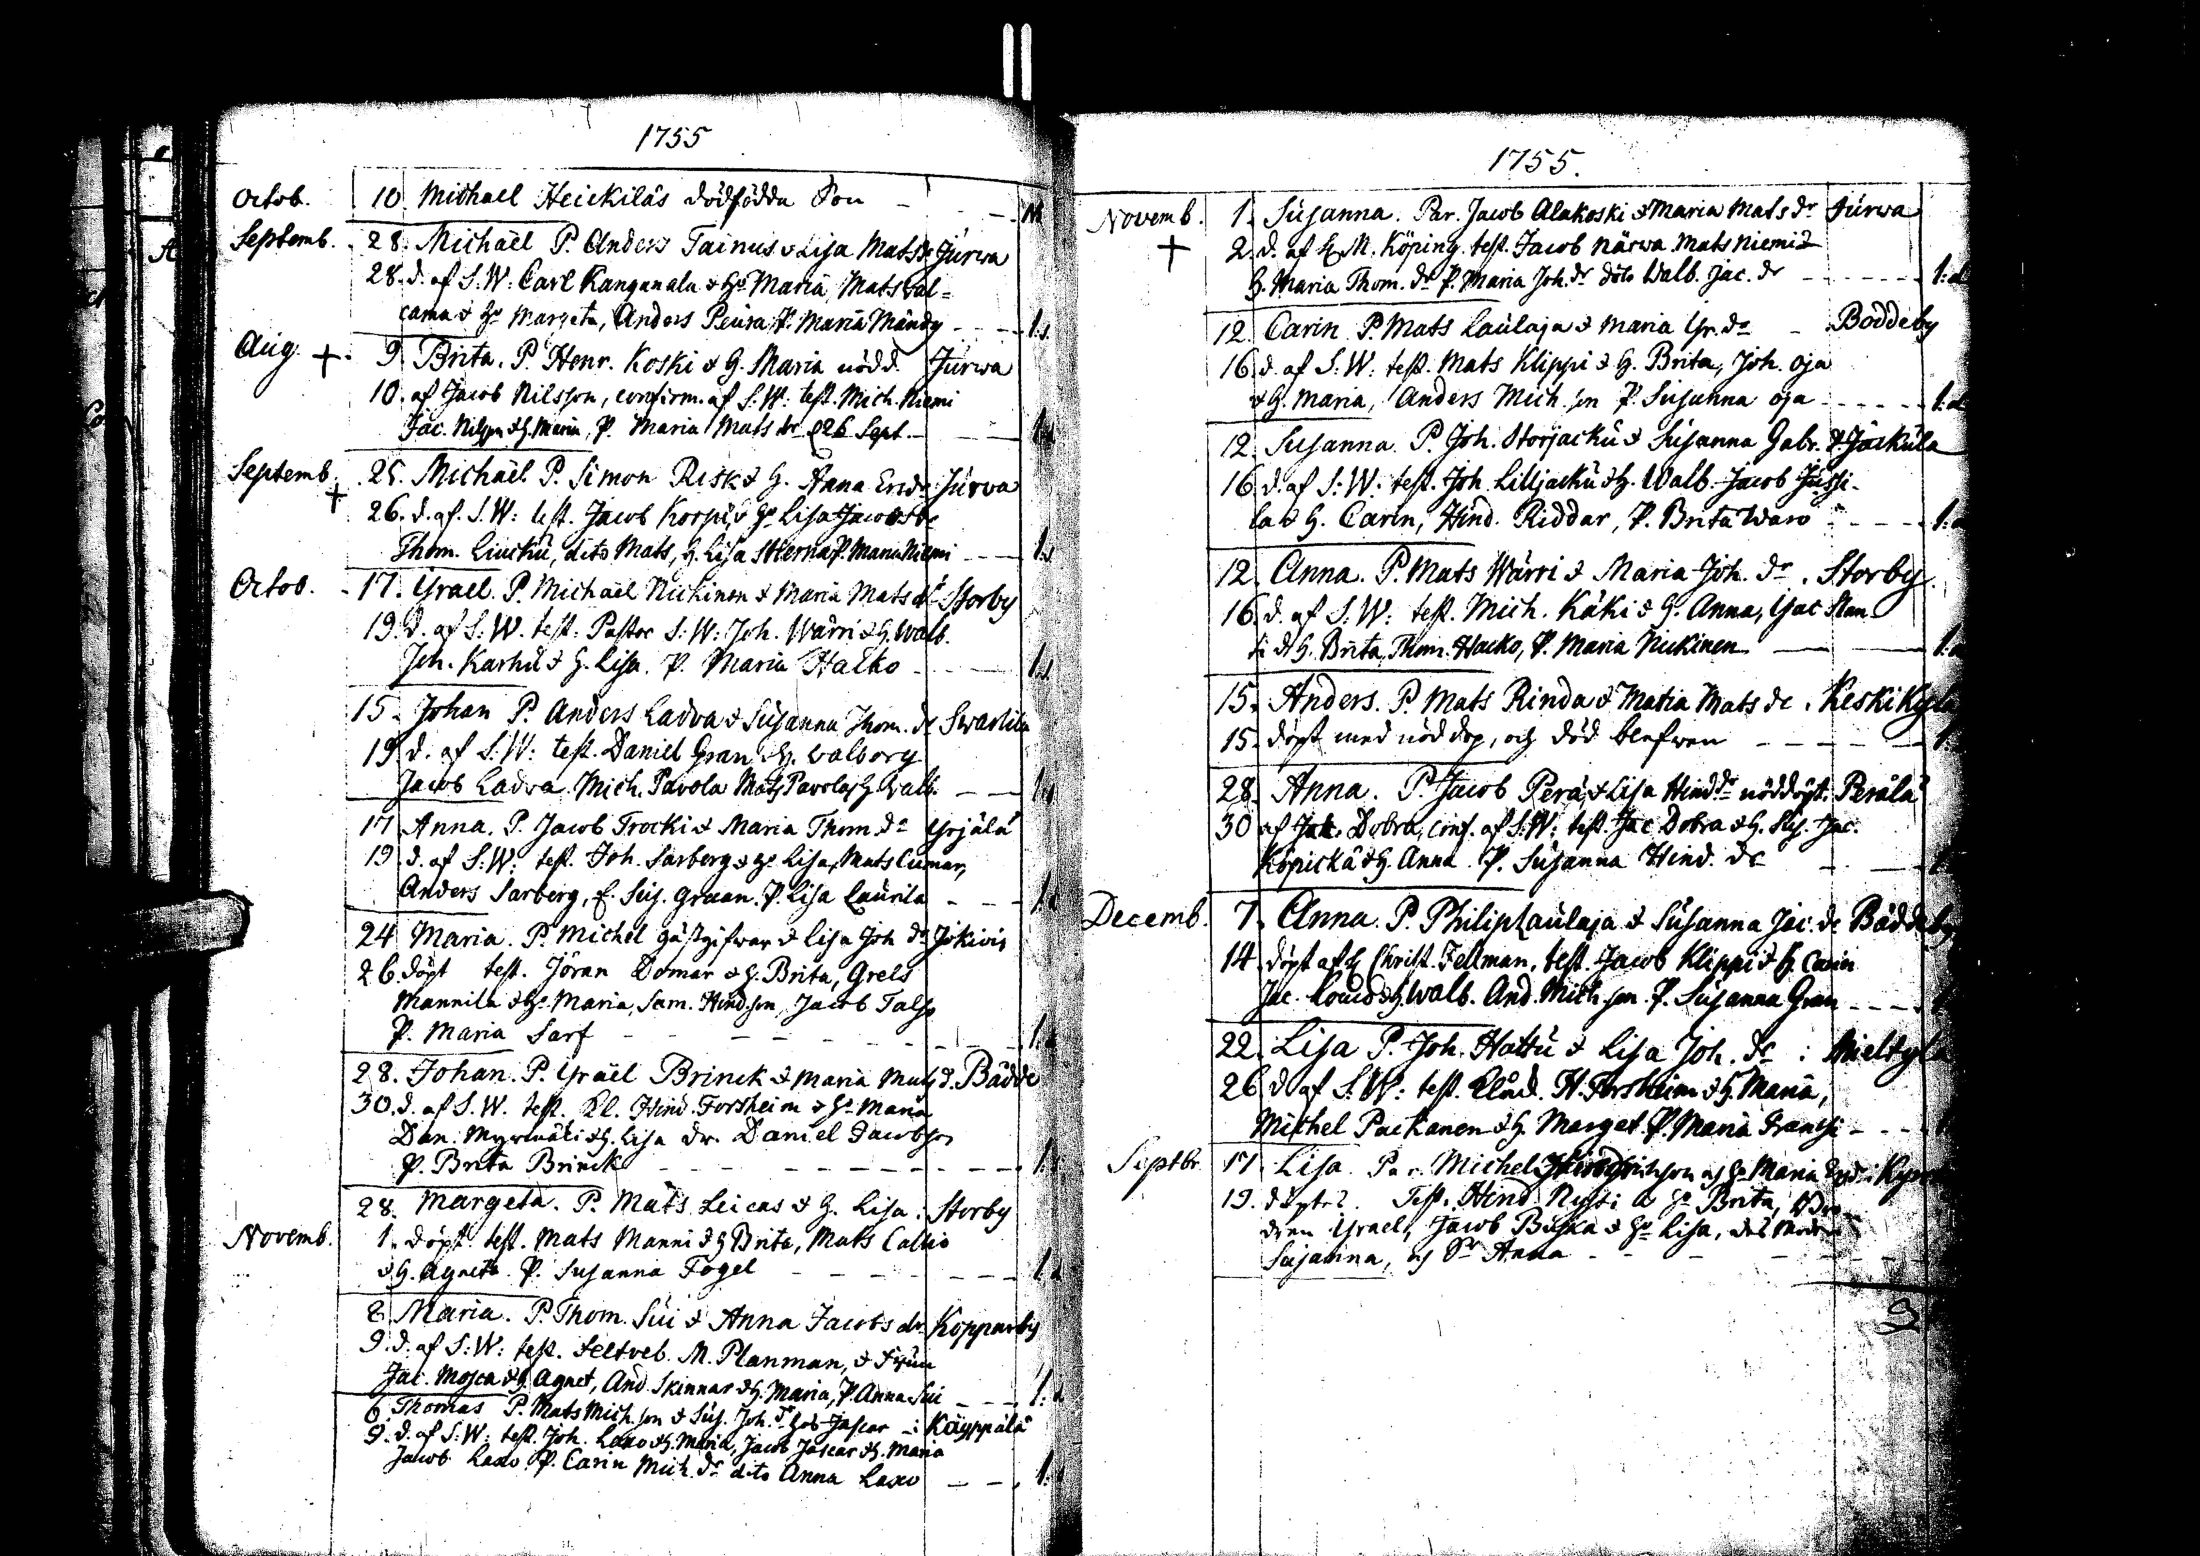 1755
Octob. 10. Michael Heickiläs dödfödda Son
Septemb. 28. Michaël P. Anders Tainus & Lisa Matsdr Jurwa
28. d. af S.W: Carl Kangan & Ho Maria, Mats
& Ho Margeta, Anders Peura P. Maria Mändy 1.
Aug. + 9 Brita. P. Henr. Koski & H. Maria nödd. Jurwa
10. af Jacob Nilsson, confirm. af S.W. test. Mich. Niemi
Jac. Nilsson & H. Maria, P. Maria Mats dr 26 Sept.
Septemb. + 25. Michaël. P. Simon Risk & H. Anna Ericdr Jurva
26. d. af. S.W: test. Jacob Korpi & Ho Lisa Jacobsdr
Thom. Liucku, dito Mats, H. Lisa P. Maria Niemi 1.
Octob. 17. Israel. P. Michaël Nickinen & Maria Mats dr Storby
19. d. af S.W. test. Pastor S.W: Joh. Wärri & H. Walb.
Joh. Karhu & H. Lisa. P. Maria Halko 1.
15. Johan P. Anders Ladva & Susanna Thom. dr
19 d. af S.W: test. Daniel Gran & H. Walborg
Jacob Ladva. Mich. Pavola Mats Pavola & H. Walb.
17 Anna. P. Jacob Trocki & Maria Thom. dr Yrjälä
19. d. af S.W: test. Joh. Sarberg & Ho Lisa, Mats Cumar,
Anders Sarberg, E. Sus. Graan. P. Lisa Laurila
24 Maria. P. Michel gästgifwar & Lisa Joh dr
26. döpt test. Jöran Domar & H. Brita, Grels
Mannila & Ho Maria, Sam. Hindsson, Jacob
P. Maria Sarf 1.
28. Johan. P. Israël Brinck & Maria Mats d. Bädde
30. d. af S.W. test. Kl. Hind. Forsheim & Ho Maria
Dan. Myrmäki & H. Lisa dr. Daniel Jacobsson
P. Brita Brinck 1.
28. Margeta. P. Mats Leicas & H. Lisa. Storby
Novemb. 1. döpt test. Mats Manni & H Brita, Mats Callio
& H. Agneta. P. Susanna Fogel 1.
8 Maria. P. Thom. Sui & Anna Jacobs dr. Kopparby
9. d. af S.W: test. Feltveb. M. Planman, & frun
Jac. Mosca & H. Agnet, And. Skinnar & H. Maria, P. Anna Sui 1.
6. Thomas P. Mats Mich.son & Sus. Joh. dr Jascar i Käyppälä
9. d. af S.W: test. Joh. Laxo & H. Maria, Jacob Jascar & H. Maria
Jacob Laxo. P. Carin Mich. dr dito Anna Laxo 1.
1755.
Novemb. 1. Susanna. Par. Jacob Alakoski & Maria Mats dr Jurwa
+ 2. d. af M. Köping. test. Jacob Närwa. Mats Niemi
H. Maria Thom. dr P. Maria Joh. dr dito Walb. Jac. dr 1:
12. Carin. P. Mats Laulaja & Maria Yr. dr Böddeby
16. d. af S.W: test. Mats Klippi & H. Brita, Joh. Oja
& H. Maria, Anders Mich.son P. Susanna Oja 1:
12. Susanna. P. Joh. Storjacku & Susanna Gabr. d. Jäckulä
16. d. af S.W: test. Joh. Lilljacku & H. Walb. Jacob Jussi-
la & H. Carin, Hind. Riddar, P. Brita Waro 1:
12. Anna. P. Mats Wärri & Maria Joh. dr. Storby.
16. d. af S.W: test. Mich. Käki & H. Anna, Isac
& H. Brita, Thom. Hacko, P. Maria Nickinen 1:
15. Anders. P. Mats Rinda & Maria Mats dr. Keski Kylä
15. döpt med nöddop, och död blefwen
28. Anna. P. Jacob Perä & Lisa Hinddr nöddöpt. Perälä
30 af Dobra, conf. af S.W: test. Jac Dobra & H. Sus. Jac.
Köpickä & H. Anna. P. Susanna Hind. dr
Decemb. 7. Anna. P. Philip Laulaja & Susanna Jac. dr Bäddeby
14. döpt af Christ. Fellman, test. Jacob Klippi & H. Carin
Jac. & H. Walb. And. Mich.son. P. Susanna Gran
22. Lisa P. Joh. Hattu & Lisa Joh. dr:
26 d. af S.W: test. H. Forsheim & H. Maria,
Michel Packanen & H. Marget. P. Maria
Septbr. 17. Lisa. Par. Michel och Ho Maria
19. döptes. Test. Hind. & Ho Brita,
Israel, Jacob & Ho Lisa,
Susanna, och Anna